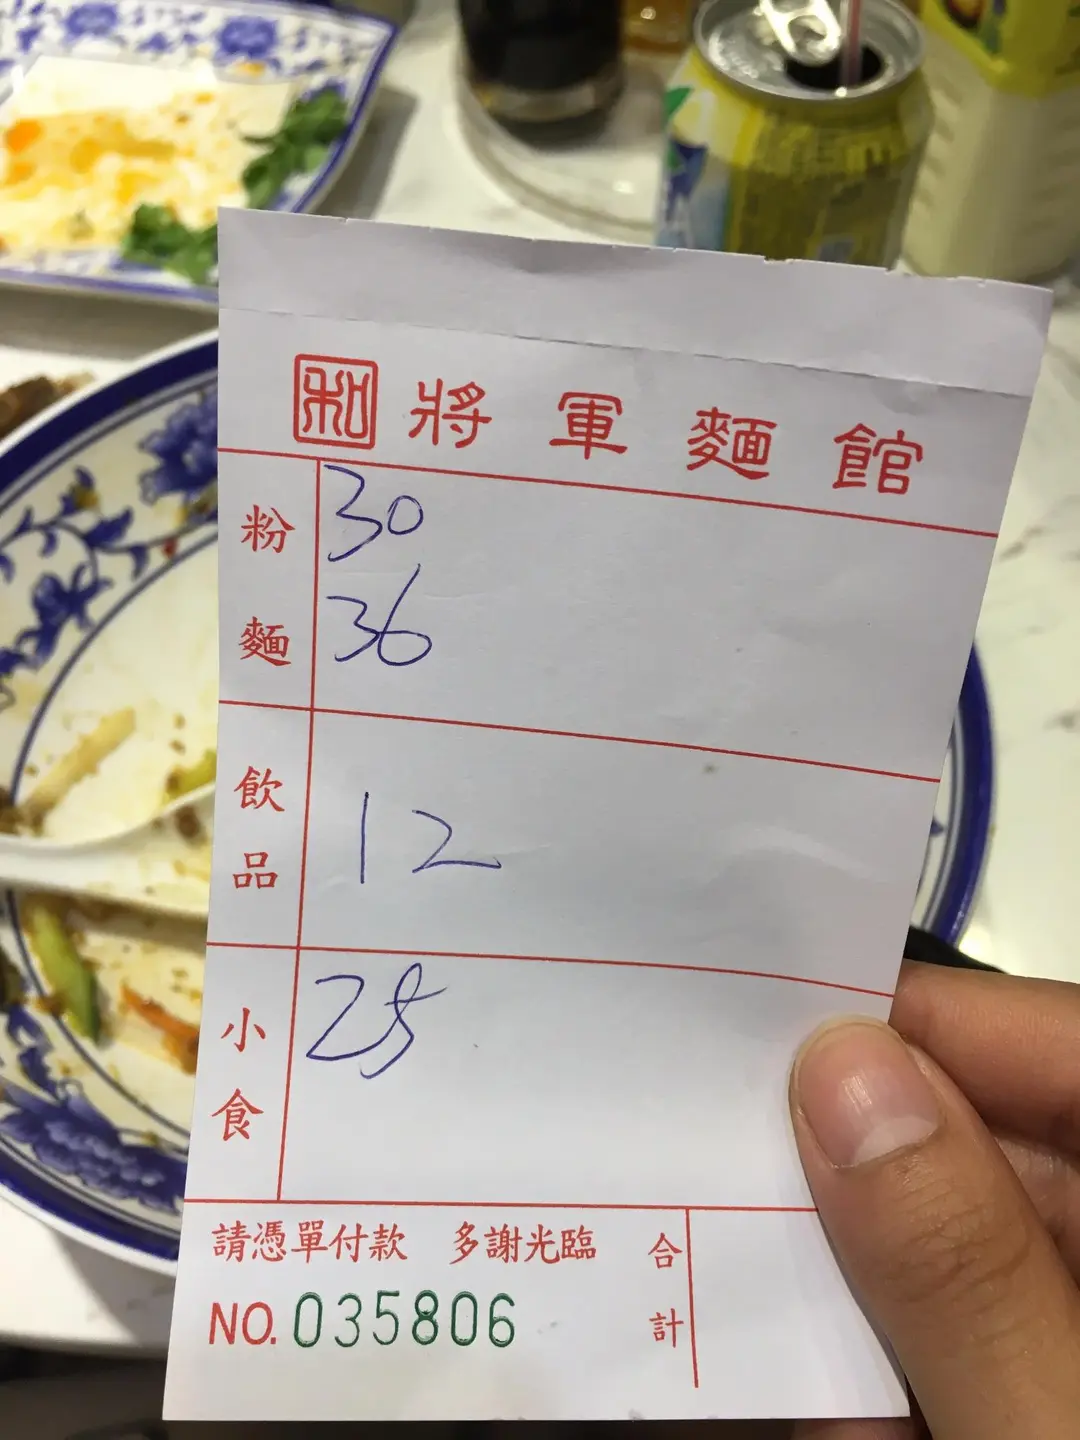 和 將軍麵館
粉麵
30
36
飲品
12
小食
25
請憑單付款 多謝光臨
合計
NO. 035806